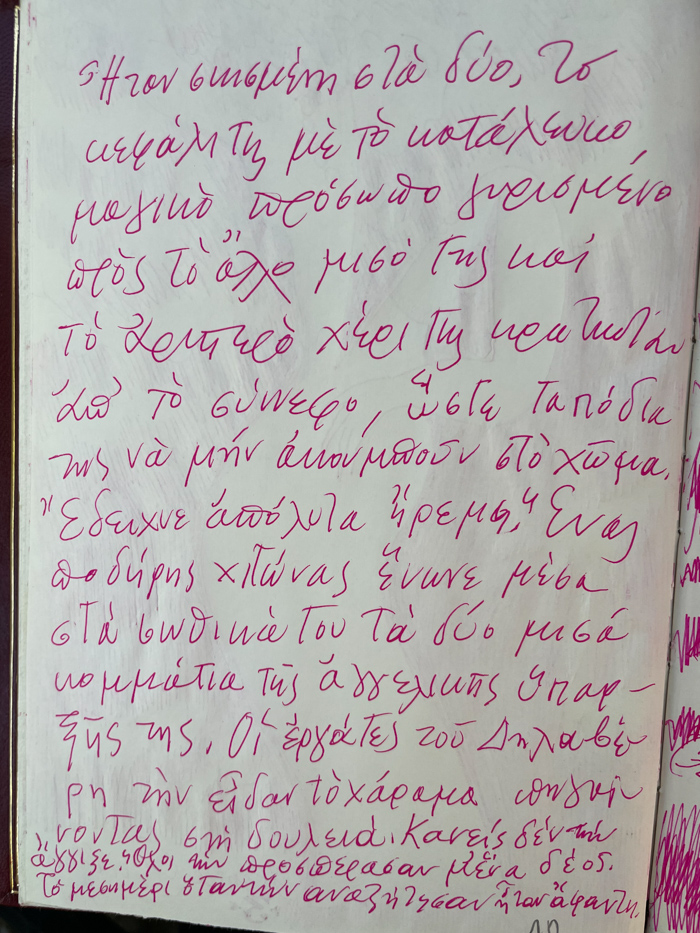 Ἦταν σκισμένη στὰ δύο, τὸ
κεφάλι της μὲ τὸ κατάλευκο
μαγικὸ πρόσωπο γυρισμένο
πρὸς τὸ ἄλλο μισό της καὶ
τὸ ἀριστερὸ χέρι της κρατιόταν
ἀπ' τὸ σύννεφο, ὥστε τα πόδια
της νὰ μὴν ἀκουμποῦν στὸ χῶμα.
Ἔδειχνε ἀπόλυτα ἤρεμη. Ἕνας
ποδήρης χιτώνας ἕνωνε μέσα
στὰ σωθικά του τὰ δύο μισά
κομμάτια τῆς ἀγγελικῆς ὑπαρ-
ξῆς της. Οἱ ἐργάτες τοῦ Δηλαβέ-
ρη τὴν εἶδαν τὸ χάραμα πηγαί-
νοντας στὴ δουλειά. Κανείς δὲν τὴν
ἄγγιξε. Ὅλοι τὴν προσπέρασαν μ' ἕνα δέος.
Τὸ μεσημέρι ὅταν τὴν αναζήτησαν ἦταν ἄφαντη.